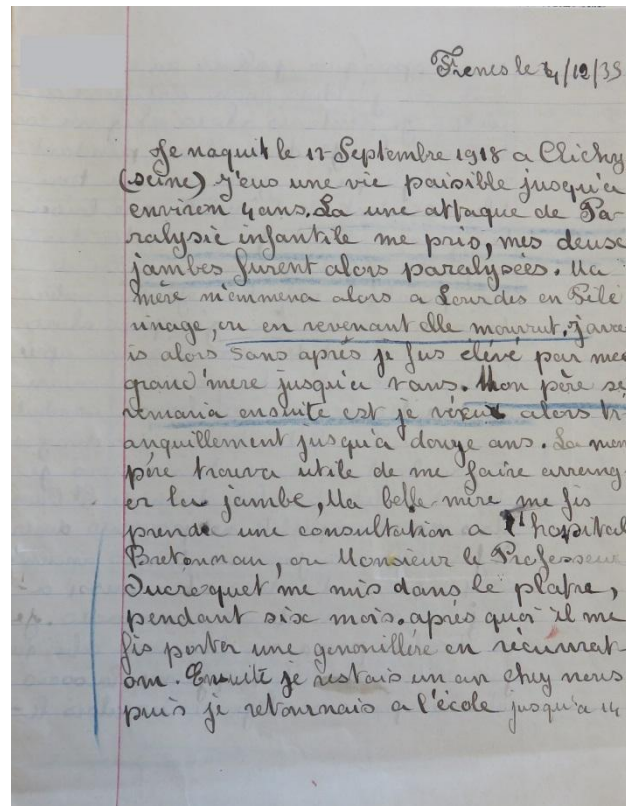 Fresnes le 4/12/35
Je naquit le 17 Septembre 1918 a Clichy
(seine) j'eus une vie paisible jusqu'a
environ 4 ans. La une attaque de Pa-
ralysie infantile me pris, mes deuse
jambes furent alors paralysées. Ma
mère m'emmena alors a Lourdes en Péle
rinage, ou en revenant elle mourrut. j'ava
is alors 5 ans après je fus élévé par mes
grand'mere jusqu'a ans. Mon père se
remaria ensuite est je alors tr
anquillement jusqu'a douze ans. La mon
père trouva utile de me faire arreng
er la jambe, Ma belle-mère me fis
prendre une consultation a l'hopital
Bretonnau, ou Monsieur le Professeur
Ducroquet me mis dans le platre,
pendant six mois. après quoi il me
fis porter une genouillére en
om. Ensuite je restais un an chez nous
puis je retournais a l'école jusqu'a 14